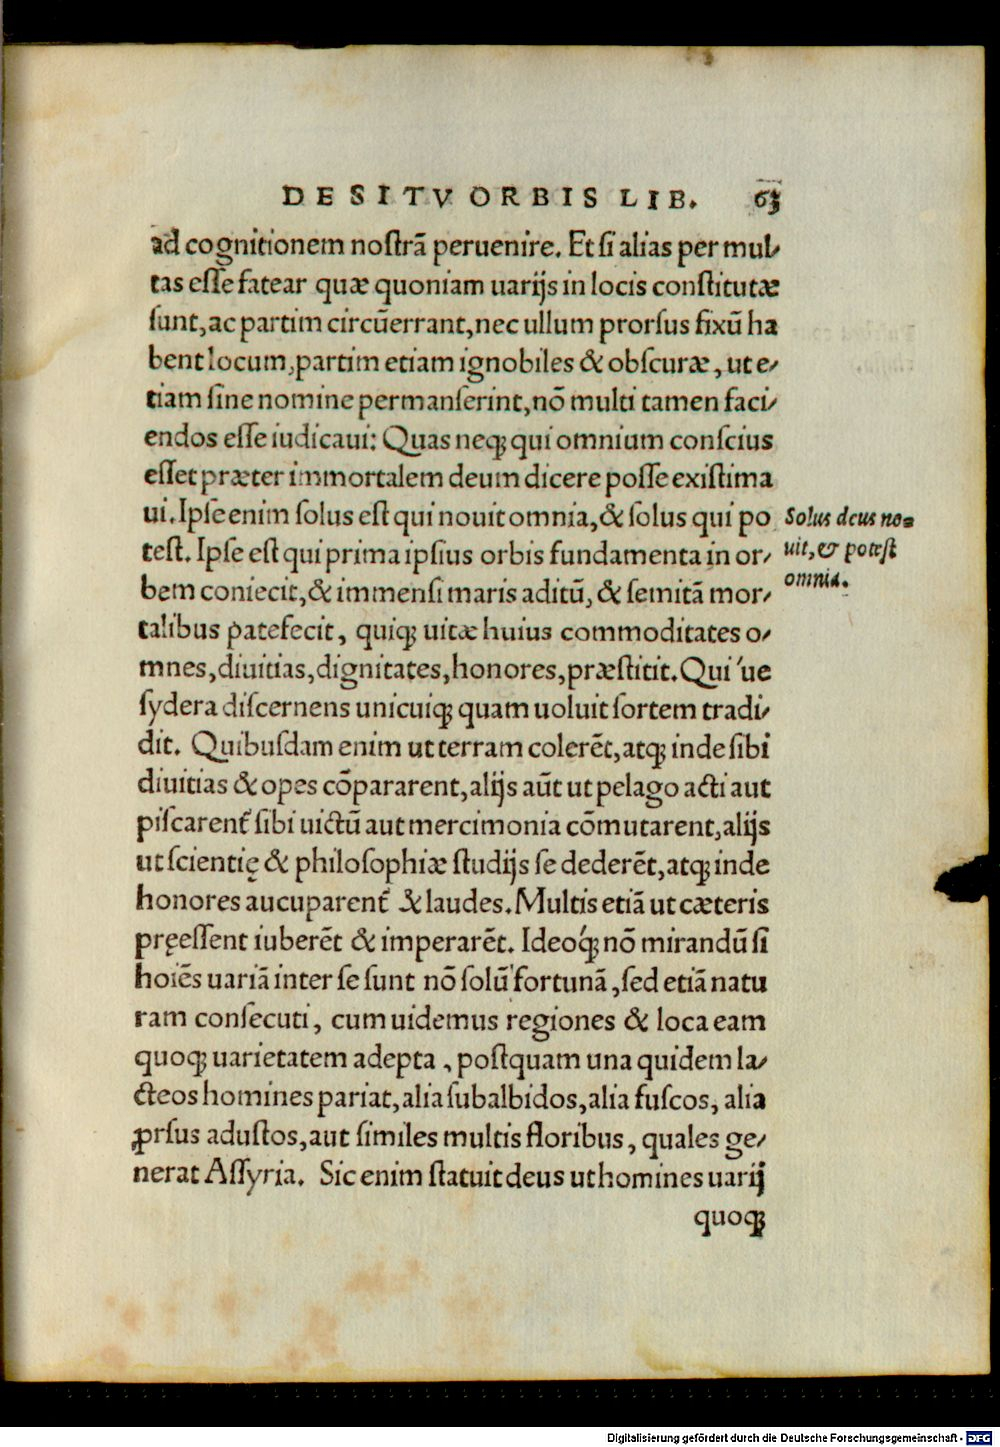 DE SITV ORBIS LIB. 63
ad cognitionem noſtrā peruenire. Et ſi alias per mul⸗
tas eſſe fatear quæ quoniam uarijs in locis conſtitutæ
ſunt, ac partim circūerrant, nec ullum prorſus fixū ha
bent locum, partim etiam ignobiles & obſcuræ, ut e⸗
tiam ſine nomine permanſerint, nō multi tamen faci⸗
endos eſſe iudicaui: Quas neq; qui omnium conſcius
eſſet præter immortalem deum dicere poſſe exiſtima
ui. Ipſe enim ſolus eſt qui nouit omnia, & ſolus qui po
teſt. Ipſe eſt qui prima ipſius orbis fundamenta in or⸗
bem coniecit, & immenſi maris aditū, & ſemitā mor⸗
talibus patefecit, quiq; uitæ huius commoditates o⸗
mnes, diuitias, dignitates, honores, præſtitit. Qui 'ue
ſydera diſcernens unicuiq; quam uoluit ſortem tradi⸗
dit. Quibuſdam enim ut terram colerēt, atq; inde ſibi
diuitias & opes cōpararent, alijs aūt ut pelago acti aut
piſcarent᷑ ſibi uictū aut mercimonia cōmutarent, alijs
ut ſcientię & philoſophiæ ſtudijs ſe dederēt, atq; inde
honores aucuparent᷑ & laudes. Multis etiā ut cæteris
pręeſſent iuberēt & imperarēt. Ideoq́; nō mirandū ſi
hoiēs uariā inter ſe ſunt nō ſolū fortunā, ſed etiā natu
ram conſecuti, cum uidemus regiones & loca eam
quoq; uarietatem adepta, poſtquam una quidem la⸗
cteos homines pariat, alia ſubalbidos, alia fuſcos, alia
ꝓrſus aduſtos, aut ſimiles multis floribus, quales ge⸗
nerat Aſſyria. Sic enim ſtatuit deus ut homines uarij
quoq;
Solus deus no⸗
uit, & poteſt
omnia.
Digitalisierung gefördert durch die Deutsche Forschungsgemeinschaft - DFG